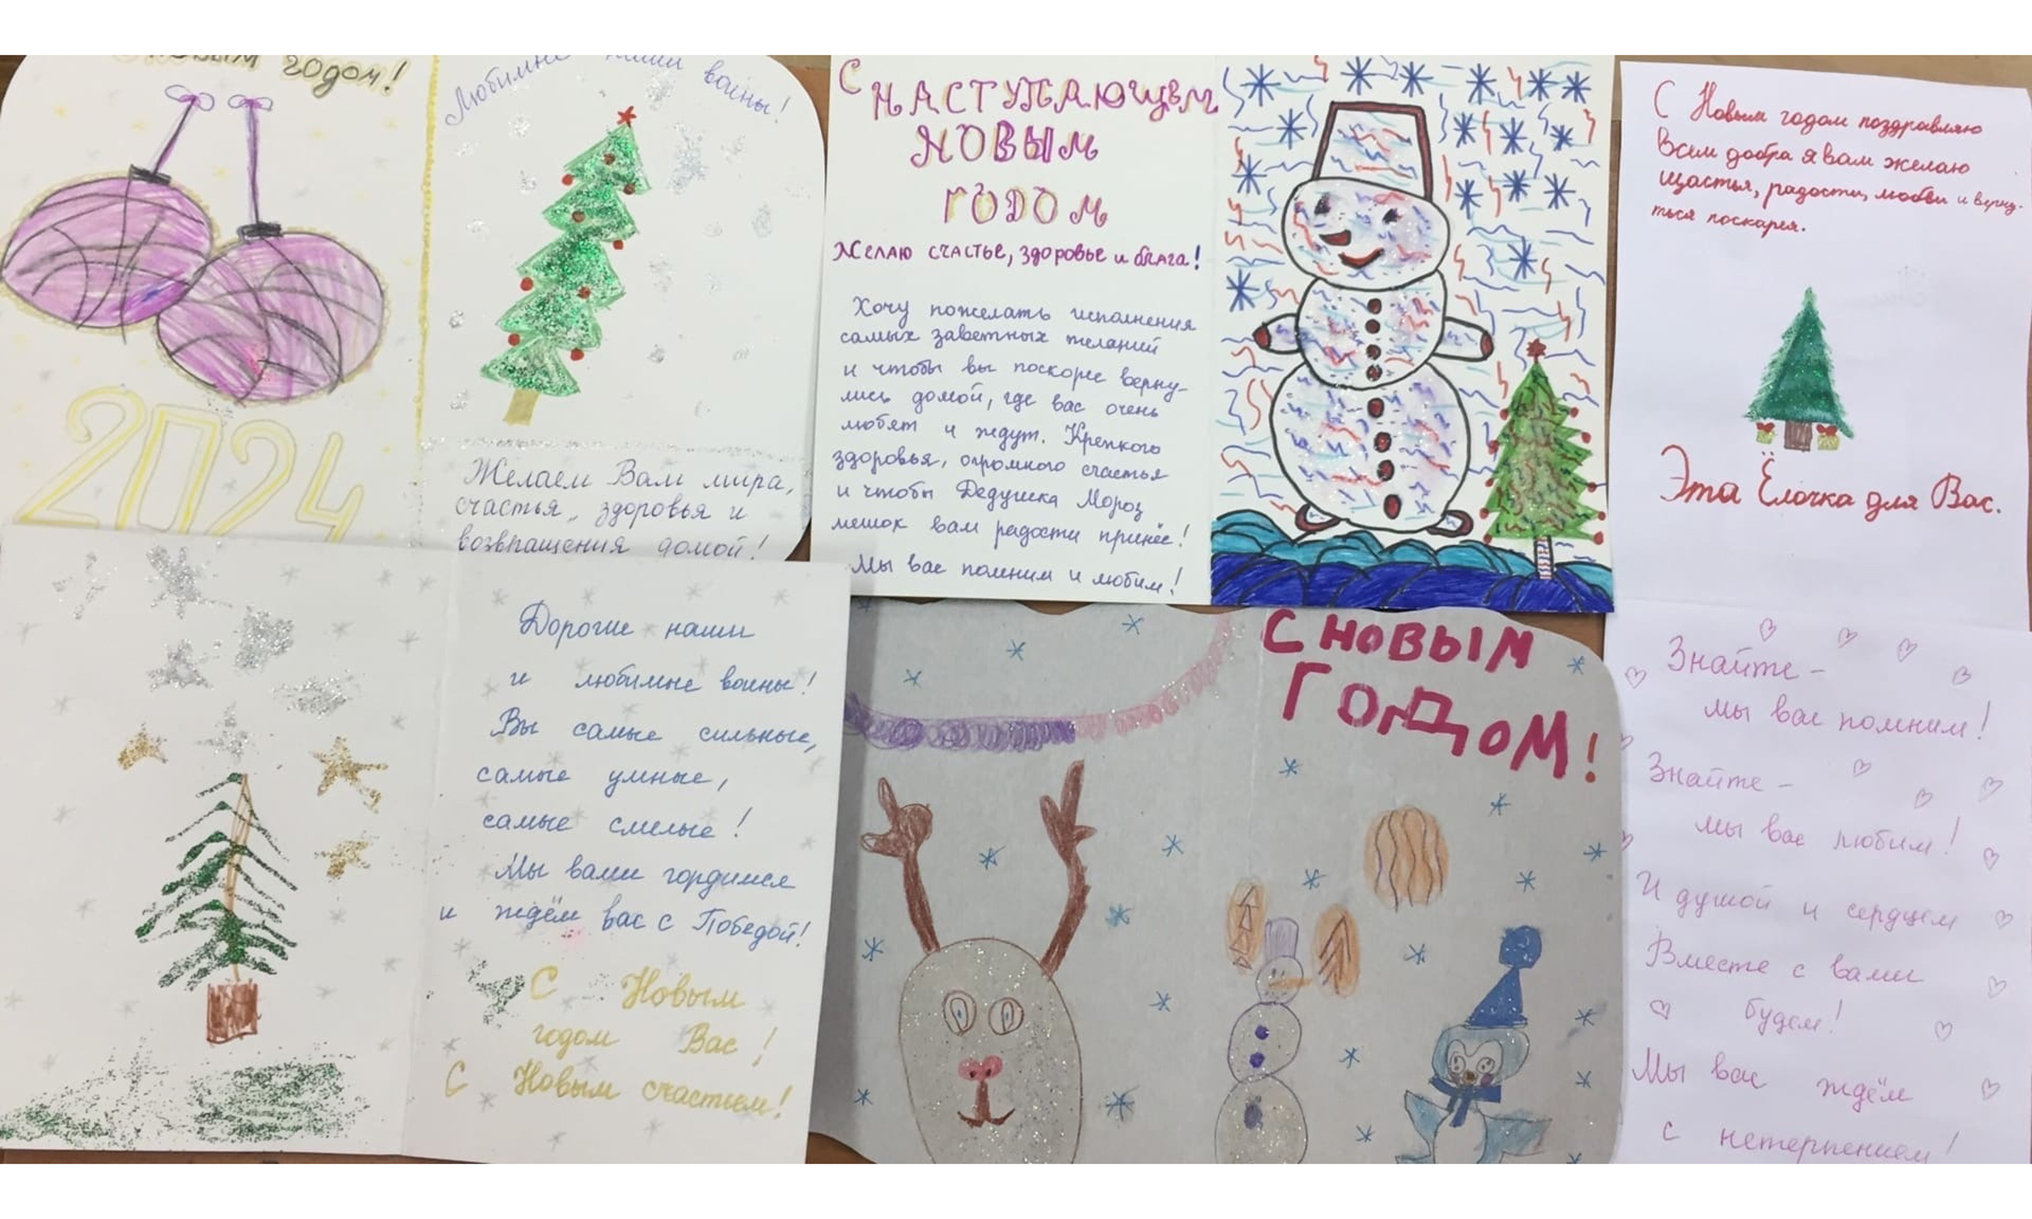 Новым годом!
2024
Любимые наши воины!
Желаем Вам мира,
счастья, здоровья и
возвращения домой!
С НАСТУПАЮЩЕМ
НОВЫМ
ГОДОМ
Желаю счастье, здоровье и блага!
Хочу пожелать исполнения
самых заветных желаний
и чтобы вы поскорее верну-
лись домой, где вас очень
любят и ждут. Крепкого
здоровья, огромного счастья
и чтобы Дедушка Мороз
мешок вам радости принёс!
Мы вас помним и любим!
С Новым годом поздравляю
Всем добра я вам желаю
Щастья, радости, любви и верну-
ться поскарея.
Эта Ёлочка для Вас.
Дорогие наши
и любимые воины!
Вы самые сильные,
самые умные,
самые смелые!
Мы вами гордимся
и ждём вас с Победой!
С Новым
годом Вас!
С Новым счастьем!
С НОВЫМ
ГОДОМ!
Знайте -
мы вас помним!
Знайте -
мы вас любим!
И душой и сердцем
Вместе с вами
будем!
Мы вас ждём
с нетерпением!